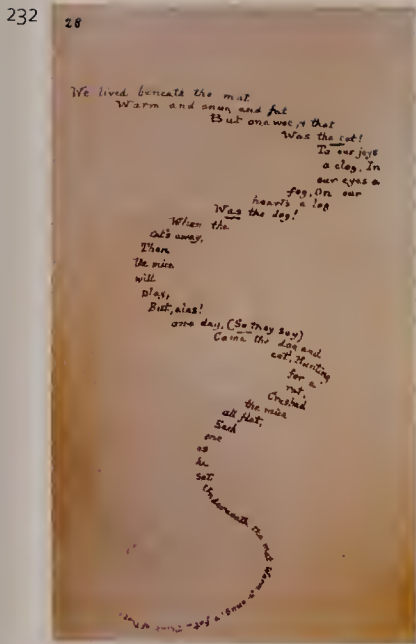 232
28
We lived beneath the mat
Warm and snug and fat
But one woe, & that
Was the cat!
To our joys
a clog, In
our eyes a
fog, On our
hearts a log
Was the dog!
When the
cat's away,
Then
the mice
will
play,
But, alas!
one day, (So they say)
Came the dog and
cat, Hunting
for a
rat,
Crushed
the mice
all flat,
Each
one
as
he
sat,
Underneath the mat, Warm, & snug, & fat. Think of that!